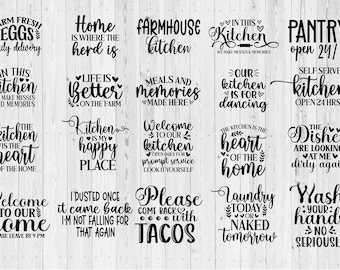 FARM FRESH
EGGS
daily delivery
Home
IS WHERE THE
herd is
FARMHOUSE
kitchen
IN THIS
Kitchen
WE MAKE MESSES & MEMORIES
PANTRY
open 24/7
IN THIS
Kitchen
WE MAKE MESSES
AND MEMORIES
LIFE IS
Better
ON THE FARM
MEALS AND
memories
MADE HERE
OUR
kitchen
IS FOR
dancing
SELF SERVE
kitchen
OPEN 24 HRS
THE
Kitchen
IS THE
heart
OF THE HOME
Kitchen
IS MY
happy
PLACE
Welcome
TO OUR
kitchen
OPEN DAILY FOR
prompt service
COOK IT YOURSELF
THE KITCHEN IS THE
heart
OF THE
home
The
Dishes
ARE LOOKING
AT ME
dirty again
Welcome
TO OUR
home
PLEASE LEAVE BY 9 PM
I DUSTED ONCE
it came back
I'M NOT FALLING FOR
THAT AGAIN
Please
COME BACK
with
TACOS
Laundry
TODAY
OR
NAKED
tomorrow
Wash
YOUR
hands
NO
SERIOUSLY